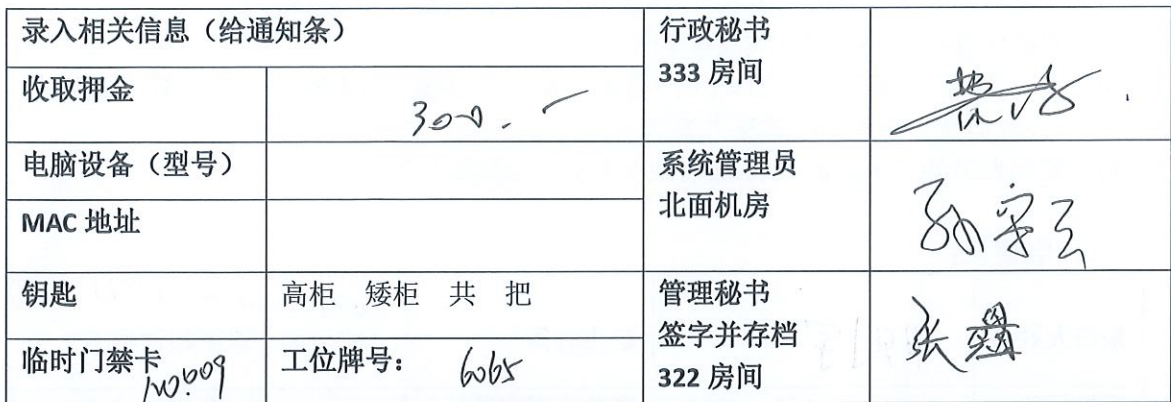 录入相关信息（给通知条）
行政秘书
333 房间
收取押金
300.-
电脑设备（型号）
系统管理员
北面机房
MAC 地址
钥匙
高柜 矮柜 共 把
管理秘书
签字并存档
322 房间
张
临时门禁卡
No009
工位牌号：
6065